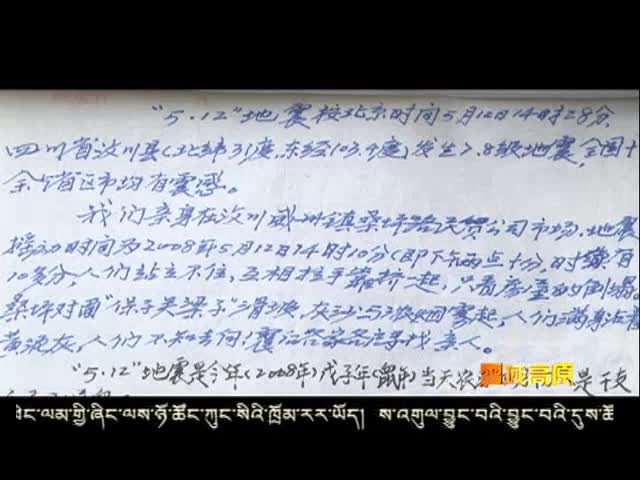 "5.12"地震按北京时间5月12日14时28分,
四川省汶川县(北纬31度,东经103.4度)发生7.8级地震,全国十
余个省区市均有震感。
我们亲身在汶川威州镇桑坪路 贸公司市场,地震
摇动时间为2008年5月12日14时10分(即下午两点十分,时 有
10多分,人们站立不住,互相拉手 一起,只看房屋 倒塌
桑坪对面"保子关梁子"滑坡,灰沙 雾起,人们满身
黄泥灰,人们不知去向!震后各家各户寻找亲人。
"5.12"地震是今年(2008年)戊子年(鼠年)当天农 是干支
高原
ཤིང་ལམ་གྱི་ཞིང་ལས་ཉོ་ཚོང་ཀུང་སིའི་ཁྲོམ་རར་ཡོད། ས་འགུལ་བྱུང་བའི་བྱུང་བའི་དུས་ཚོ